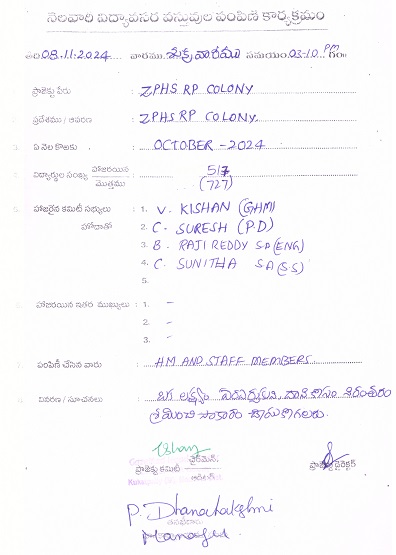 నెలవారి విద్యావసర వస్తువుల పంపిణి కార్యక్రమం
తేది:08.11.2024.... వారము.శుక్రవారము సమయం:03-10..PM గం॥
ప్రాజెక్టు పేరు : ZPHS RP COLONY
ప్రదేశము / ఆవరణ : ZPHS RP COLONY.
3. ఏ నెల కొరకు : OCTOBER -2024
విద్యార్థుల సంఖ్య హాజరయిన / మొత్తము : 517 / (727)
హాజరైన కమిటీ సభ్యులు : 1. V. KISHAN (GHM)
హోదాతో 2. C. SURESH (P.D)
3. B. RAJI REDDY SA (ENG)
4. C. SUNITHA SA (S.S)
5.
హాజరయిన ఇతర ముఖ్యులు : 1. –
2. –
3. –
పంపిణీ చేసిన వారు : HM AND STAFF MEMBERS
వివరణ / సూచనలు : ఒక లక్ష్యం ఏర్పరచుకుని, దాని కోసం నిరంతరం
శ్రమించి సాకారం చేసుకోగలరు.
ప్రాజెక్టు కమిటీ ఛైర్మెన్
ప్రాజెక్ట్ డైరెక్టర్
P. Dhanalakshmi
Manager